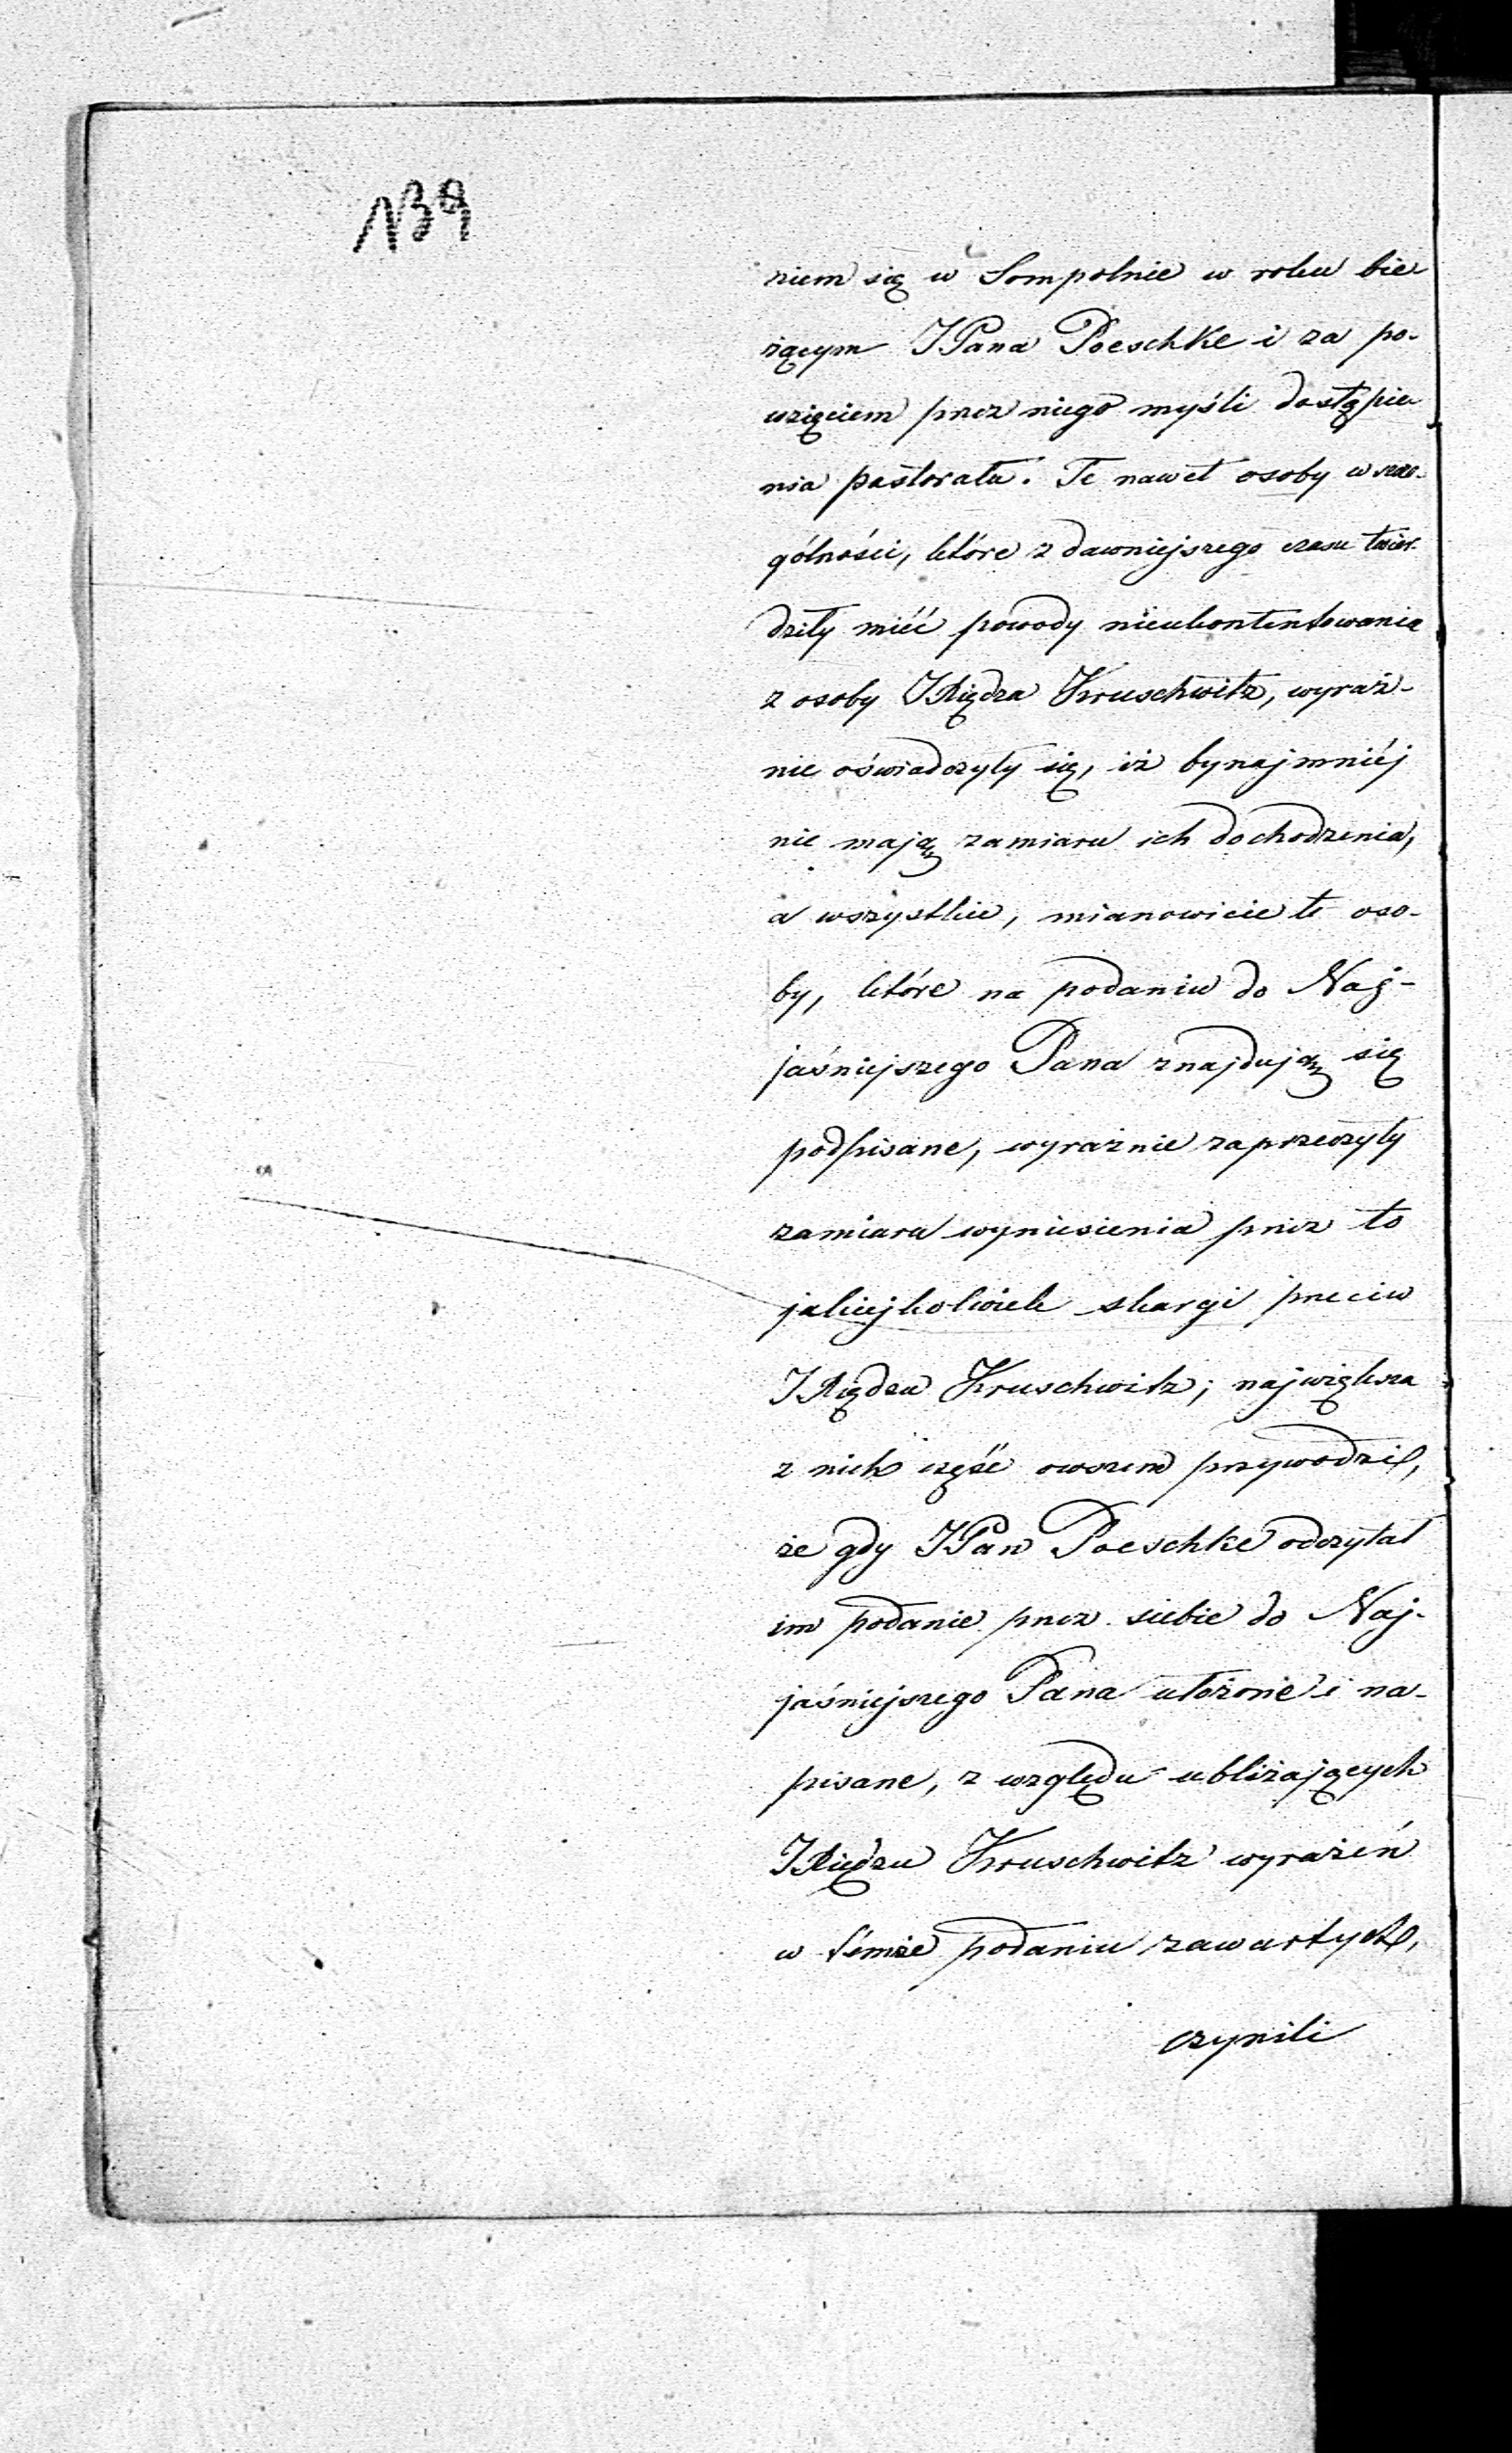 139
niem się w Sompolnie w roku bie
żącym JPana Poeschke i za po-
wzięciem przez niego myśli dostąpie
nia pastoratu. Te nawet osoby w szcze-
gólności, które z dawniejszego czasu twier-
dziły mieć powody nieukontentowania
z osoby JXiędza Kruschwitz, wyraź-
nie oświadczyły się, iż bynajmniéj
nie mają zamiaru ich dochodzenia,
a wszystkie, mianowicie te oso-
by, które na podaniu do Naj-
jaśniejszego Pana znajdują się
podpisane, wyraźnie zaprzeczyły
zamiaru wyniesienia przez to
jakiejkolwiek skargi przeciw
JXiędzu Kruschwitz; największa
z nich część owszem przywodzi,
że gdy JPan Poeschke odczytał
im podanie przez siebie do Naj-
jaśniejszego Pana ułożone i na-
pisane, z względu ubliżających
JXiędzu Kruschwitz wyrażeń
w témże podaniu zawartych,
czynili